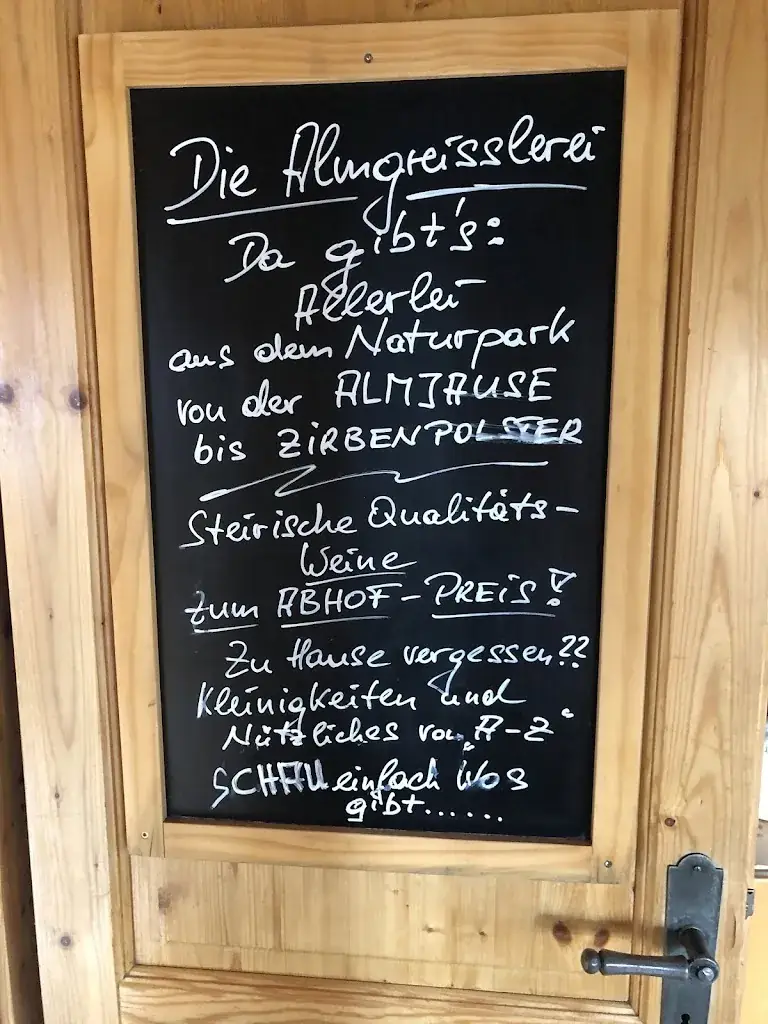 Die Almgreisslerei
Da gibt's:
Allerlei
aus dem Naturpark
von der ALMJAUSE
bis ZIRBENPOLSTER
Steirische Qualitäts-
Weine
zum ABHOF-PREIS!
Zu Hause vergessen??
Kleinigkeiten und
Nützliches von "A-Z"
SCHAU einfach wos
gibt......